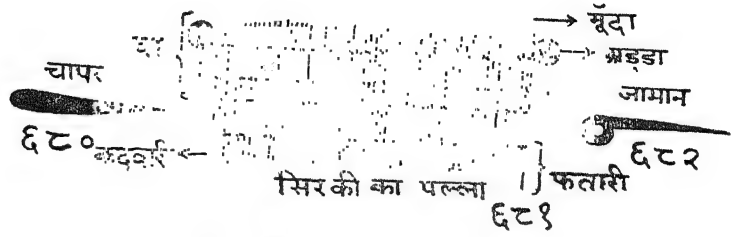 मूँदा
अड्डा
चापर
जामान
६८०
६८२
सिरकी का पल्ला
फतारी
६८१